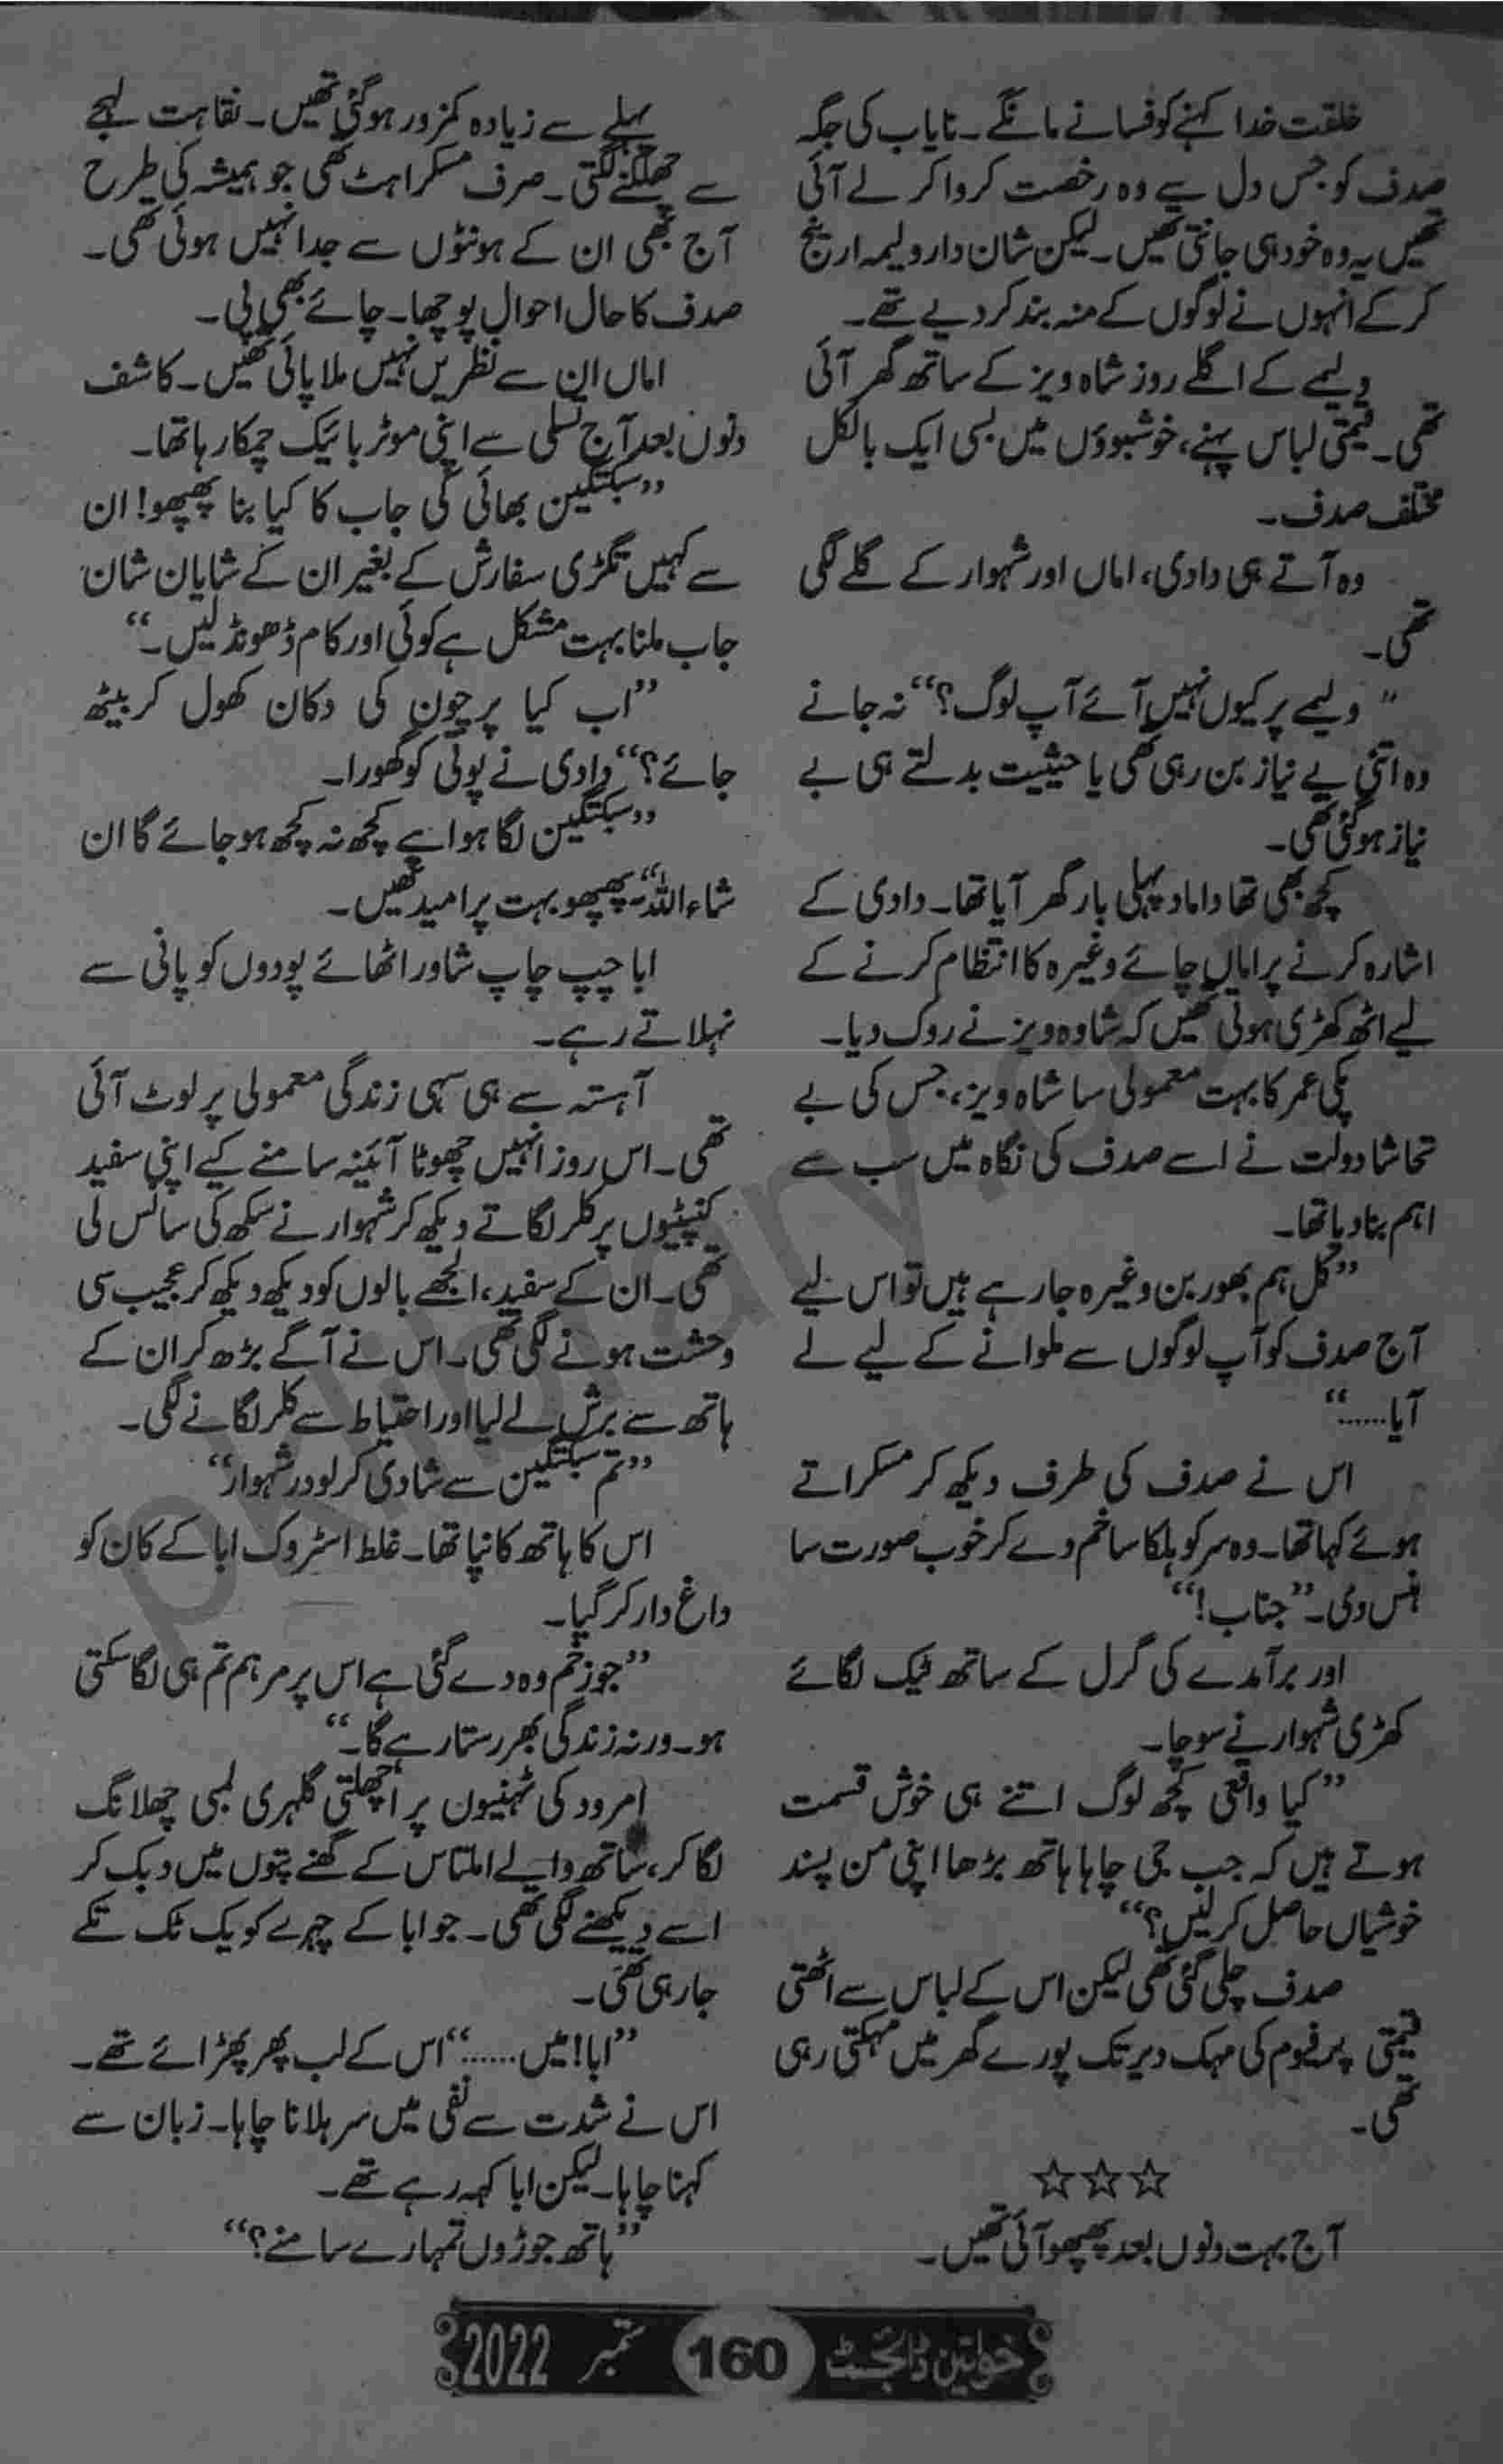 خلقت خدا کہنے کو فسانے مانگے۔ نایاب کی جگہ
صدف کو جس دل سے وہ رخصت کروا کر لے آئی
تھیں یہ وہ خود ہی جانتی تھیں۔ لیکن شان دار ولیمہ ارینج
کر کے انہوں نے لوگوں کے منہ بند کر دیے تھے۔
ولیمے کے اگلے روز شاہ ویز کے ساتھ گھر آئی
تھی۔ قیمتی لباس پہنے، خوشبوؤں میں بسی ایک بالکل
مختلف صدف۔
وہ آتے ہی دادی، اماں اور شہوار کے گلے لگی
تھی۔
”ولیمے پر کیوں نہیں آئے آپ لوگ؟“ نہ جانے
وہ اتنی بے نیاز بن رہی تھی یا حیثیت بدلتے ہی بے
نیاز ہو گئی تھی۔
کچھ بھی تھا داماد پہلی بار گھر آیا تھا۔ دادی کے
اشارہ کرنے پر اماں چائے وغیرہ کا انتظام کرنے کے
لیے اٹھ کھڑی ہوئی تھیں کہ شاہ ویز نے روک دیا۔
پکی عمر کا بہت معمولی سا شاہ ویز، جس کی بے
تحاشا دولت نے اسے صدف کی نگاہ میں سب سے
اہم بنا دیا تھا۔
”کل ہم بھوربن وغیرہ جا رہے ہیں تو اس لیے
آج صدف کو آپ لوگوں سے ملوانے کے لیے لے
آیا......“
اس نے صدف کی طرف دیکھ کر مسکراتے
ہوئے کہا تھا۔ وہ سر کو ہلکا سا خم دے کر خوب صورت سا
ہنس دی۔ ”جناب!“
اور برآمدے کی گرل کے ساتھ ٹیک لگائے
کھڑی شہوار نے سوچا۔
”کیا واقعی کچھ لوگ اتنے ہی خوش قسمت
ہوتے ہیں کہ جب جی چاہا ہاتھ بڑھا اپنی من پسند
خوشیاں حاصل کر لیں؟“
صدف چلی گئی تھی لیکن اس کے لباس سے اٹھتی
قیمتی پرفیوم کی مہک دیر تک پورے گھر میں مہکتی رہی
تھی۔
☆☆☆
آج بہت دنوں بعد پھپھو آئی تھیں۔
پہلے سے زیادہ کمزور ہو گئی تھیں۔ نقاہت لہجے
سے چھلکنے لگتی۔ صرف مسکراہٹ تھی جو ہمیشہ کی طرح
آج بھی ان کے ہونٹوں سے جدا نہیں ہوئی تھی۔
صدف کا حال احوال پوچھا۔ چائے بھی پی۔
اماں ان سے نظریں نہیں ملا پائی تھیں۔ کاشف
دنوں بعد آج تسلی سے اپنی موٹر بائیک چمکا رہا تھا۔
”سبکتگین بھائی کی جاب کا کیا بنا پھپھو! ان
سے کہیں تگڑی سفارش کے بغیر ان کے شایان شان
جاب ملنا بہت مشکل ہے کوئی اور کام ڈھونڈ لیں۔“
”اب کیا پرچون کی دکان کھول کر بیٹھ
جائے؟“ دادی نے پوتی کو گھورا۔
”سبکتگین لگا ہوا ہے کچھ نہ کچھ ہو جائے گا ان
شاء اللہ“ پھپھو بہت پر امید تھیں۔
ابا چپ چاپ شاور اٹھائے پودوں کو پانی سے
نہلاتے رہے۔
آہستہ سے ہی سہی زندگی معمولی پر لوٹ آئی
تھی۔ اس روز انہیں چھوٹا آئینہ سامنے کیے اپنی سفید
کنپٹیوں پر کلر لگاتے دیکھ کر شہوار نے سکھ کی سانس لی
تھی۔ ان کے سفید، الجھے بالوں کو دیکھ دیکھ کر عجیب سی
وحشت ہونے لگی تھی۔ اس نے آگے بڑھ کر ان کے
ہاتھ سے برش لے لیا اور احتیاط سے کلر لگانے لگی۔
”تم سبکتگین سے شادی کر لو درشہوار“
اس کا ہاتھ کانپا تھا۔ غلط اسٹروک ابا کے کان کو
داغ دار کر گیا۔
”جو زخم وہ دے گئی ہے اس پر مرہم تم ہی لگا سکتی
ہو۔ ورنہ زندگی بھر رستا رہے گا۔“
امرود کی ٹہنیوں پر اچھلتی گلہری لمبی چھلانگ
لگا کر، ساتھ والے املتاس کے گھنے پتوں میں دبک کر
اسے دیکھنے لگی تھی۔ جو ابا کے چہرے کو یک ٹک تکے
جا رہی تھی۔
”ابا! میں......“ اس کے لب پھر پھڑائے تھے۔
اس نے شدت سے نفی میں سر ہلانا چاہا۔ زبان سے
کہنا چاہا۔ لیکن ابا کہہ رہے تھے۔
”ہاتھ جوڑوں تمہارے سامنے؟“
خواتین ڈائجسٹ 160 ستمبر 2022